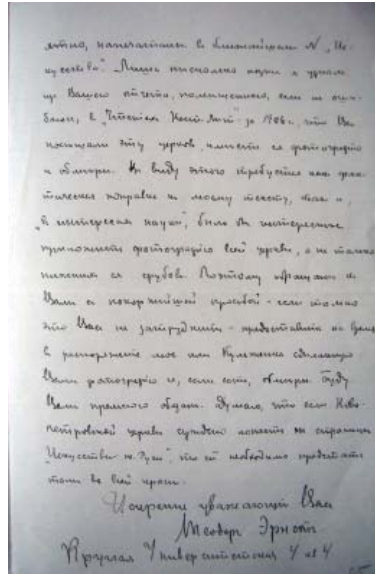 ятно, напечатаны в ближайшем N „Ис-
кусства“. Лишь несколько позже я узнал
из Вашего отчета, помещенного, если не оши-
баюсь, в за 1906 г., что Вы
посещали эту церковь, имеете ее фотографию
и обмеры. В виду этого требуется как фак-
тическая поправка к моему тексту, так и,
„в интересах науки“, было бы интереснее
приложить фотографию всей церкви, а не только
нижних ея срубов. Поэтому обращаюсь к
Вам с покорнейшей просьбой - если только
это Вас не затруднит - предоставить на время
в распоряжение мое или Кульженко сделанную
Вами фотографию и, если есть, обмеры. Буду
Вам премного обязан. Думаю, что если Ново-
петровской церкви суждено попасть на страницы
„Искусства“, то ей необходимо предстать
там во всей красе.
Искренно уважающий Вас
Теодор Эрнст
Круглая Университетская 4 кв 4